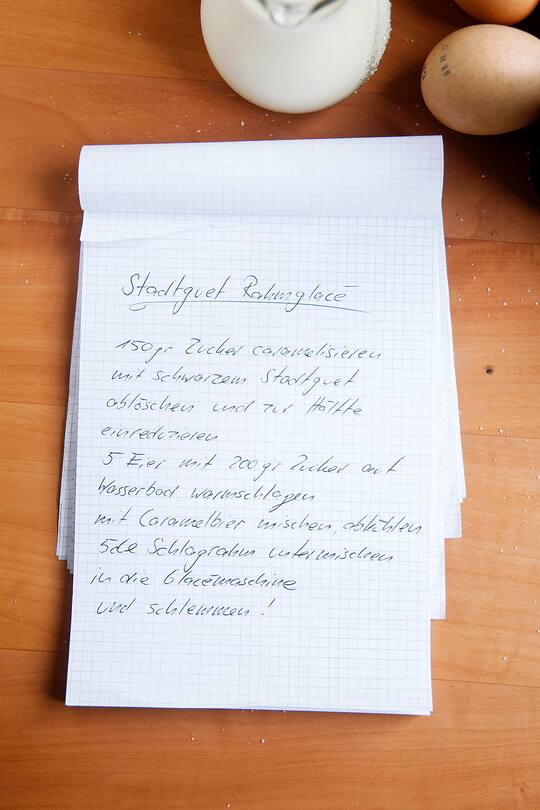 Stadtguet Rahmglacé
150gr Zucker caramelisieren
mit schwarzem Stadtguet
ablöschen und zur Hälfte
einreduzieren
5 Eier mit 200gr Zucker auf
Wasserbad warmschlagen
mit Caramelbier mischen, abkühlen
5de Schlagrahm untermischen
in die Glacémaschine
und schlemmen!